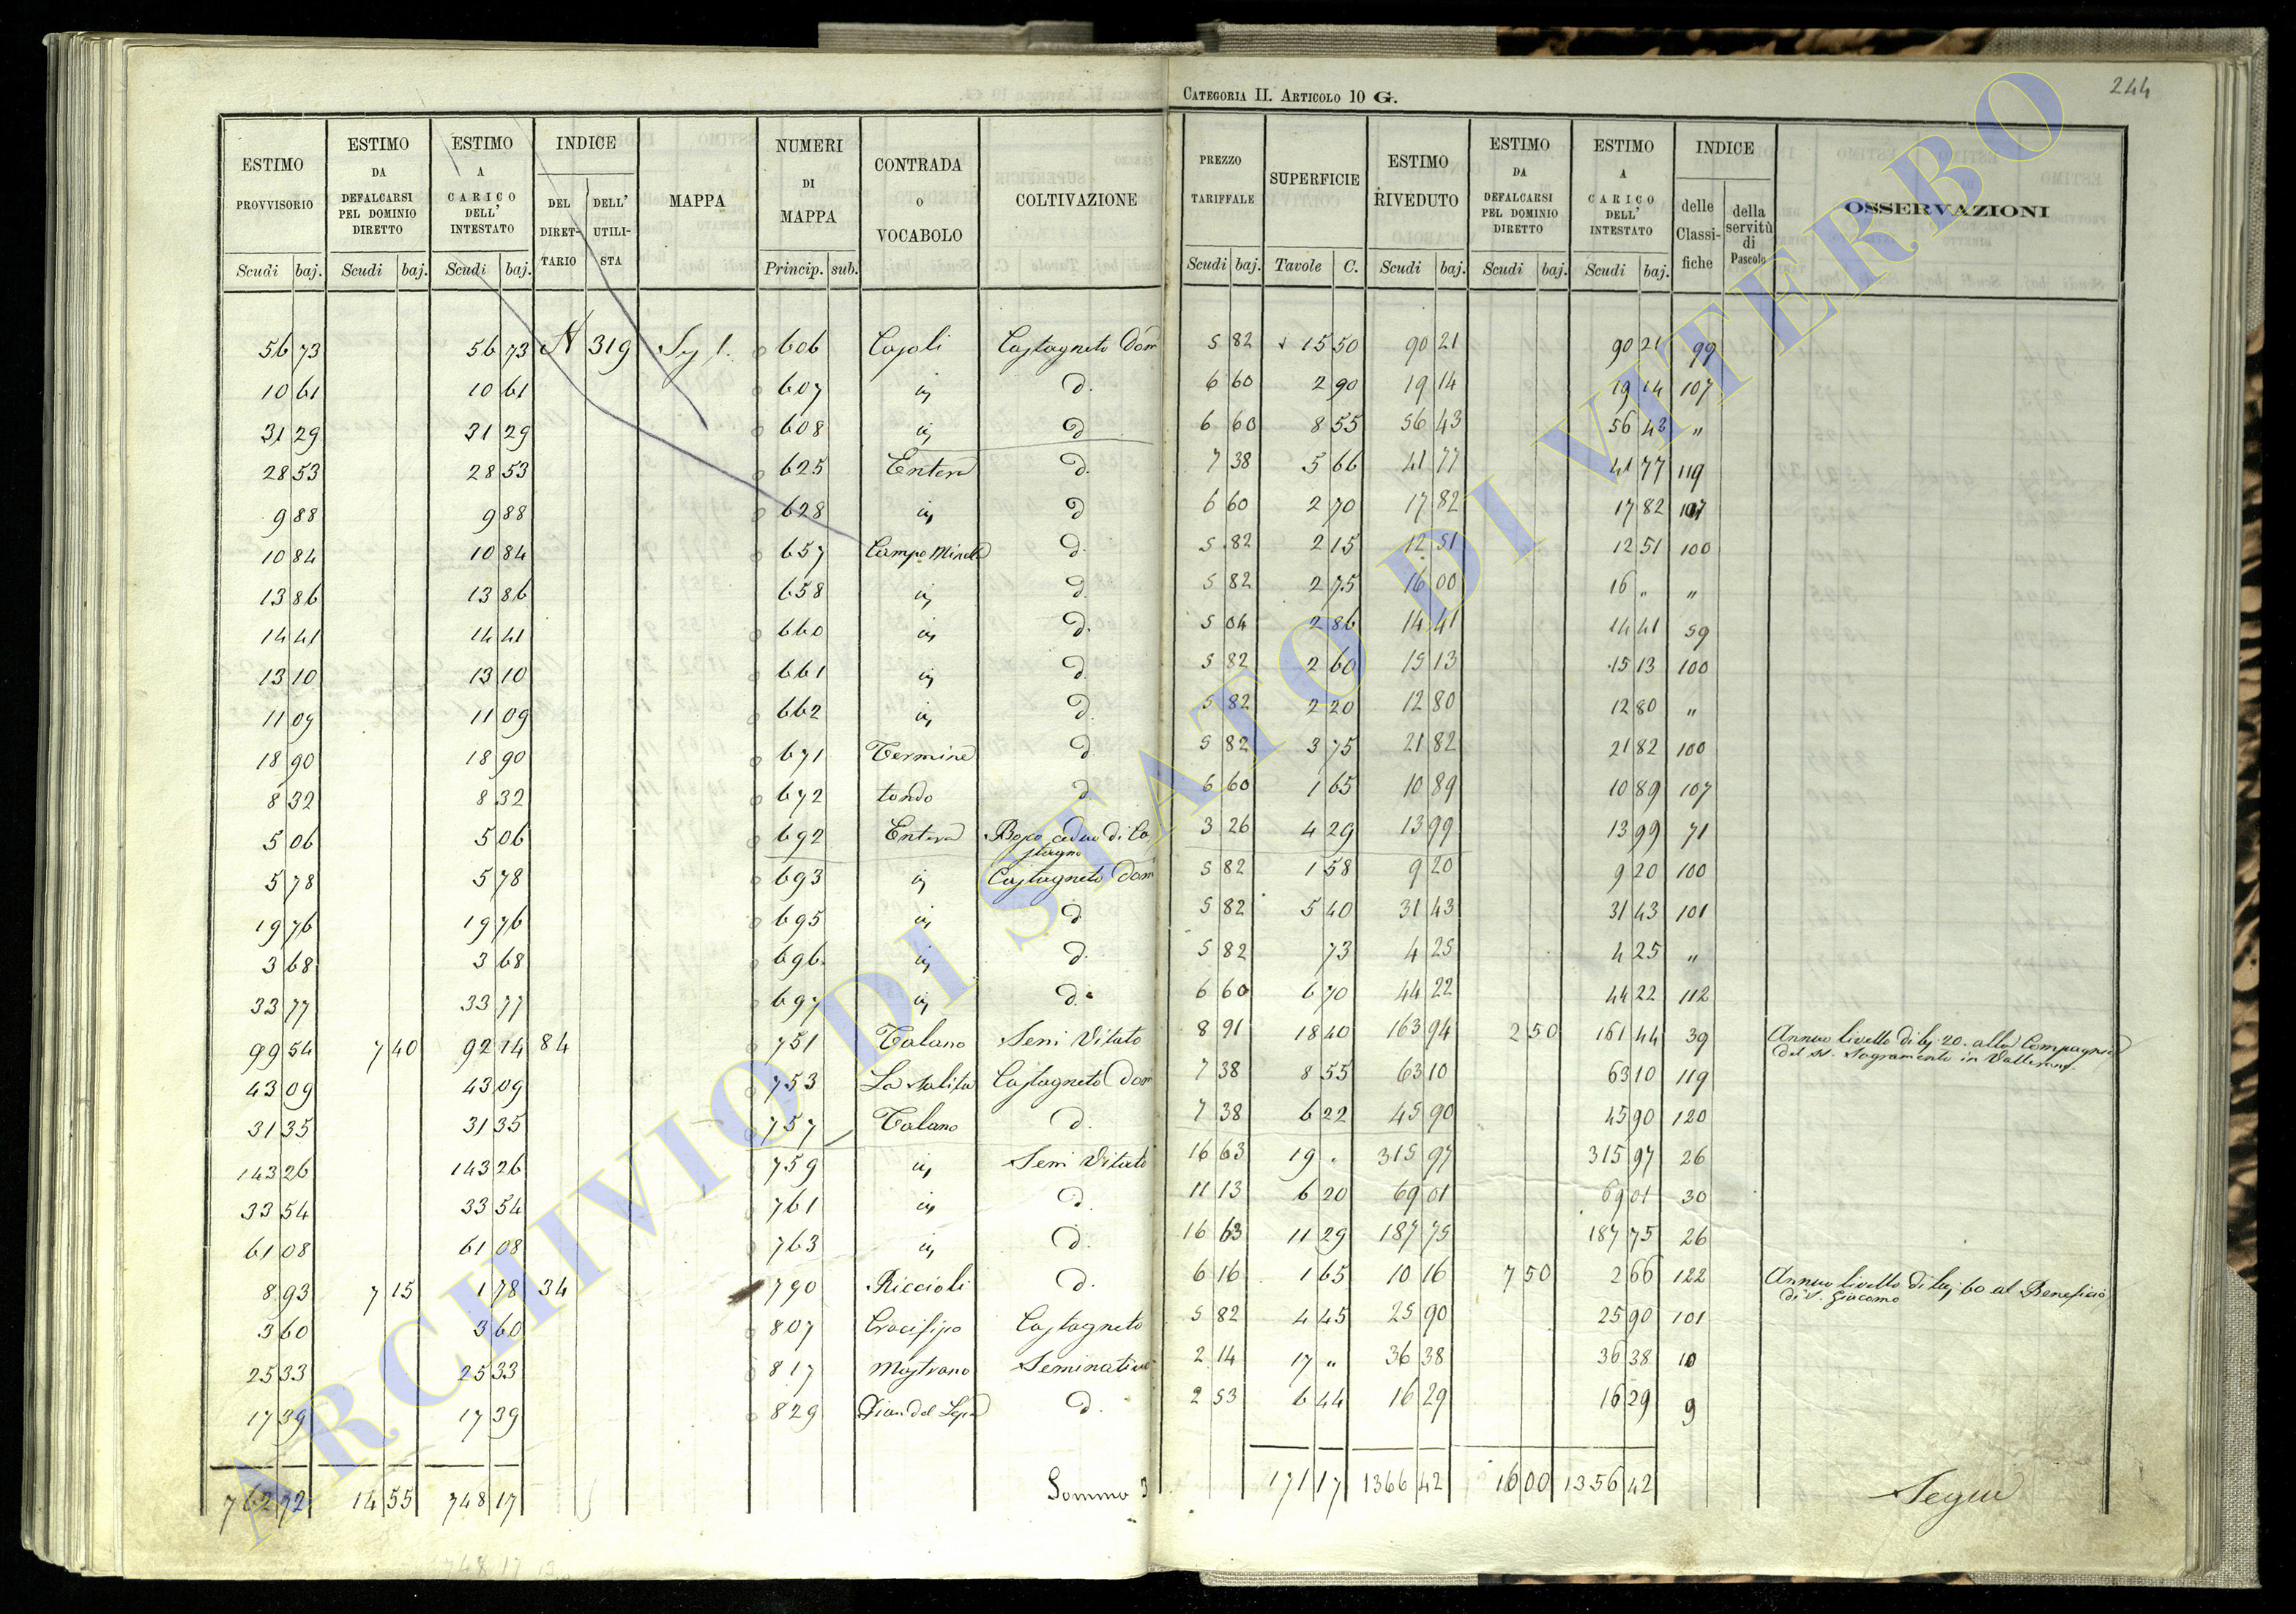 244
CATEGORIA II. ARTICOLO 10 G.
ESTIMO PROVVISORIO Scudi baj. | ESTIMO DA DEFALCARSI PEL DOMINIO DIRETTO Scudi baj. | ESTIMO A CARICO DELL' INTESTATO Scudi baj. | INDICE DEL DIRET-TARIO | DELL' UTILI-STA | MAPPA | NUMERI DI MAPPA Princip. sub. | CONTRADA O VOCABOLO | COLTIVAZIONE | PREZZO TARIFFALE Scudi baj. | SUPERFICIE Tavole C. | ESTIMO RIVEDUTO Scudi baj. | ESTIMO DA DEFALCARSI PEL DOMINIO DIRETTO Scudi baj. | ESTIMO A CARICO DELL' INTESTATO Scudi baj. | INDICE delle Classi-fiche | della servitù di Pascolo | OSSERVAZIONI
56 73 56 73 319 606 Casoli Castagneto Dom 5 82 15 50 90 21 90 21 99
10 61 10 61 607 d. 6 60 2 90 19 14 19 14 107
31 29 31 29 608 d 6 60 8 55 56 43 56 43 "
28 53 28 53 625 Entera d. 7 38 5 66 41 77 41 77 119
9 88 9 88 628 d 6 60 2 70 17 82 17 82 107
10 84 10 84 657 Campo d. 5 82 2 15 12 51 12 51 100
13 86 13 86 658 d. 5 82 2 75 16 00 16 " "
14 41 14 41 660 d. 5 04 2 86 14 41 14 41 59
13 10 13 10 661 d. 5 82 2 60 15 13 15 13 100
11 09 11 09 662 d. 5 82 2 20 12 80 12 80 "
18 90 18 90 671 Termine d. 5 82 3 75 21 82 21 82 100
8 32 8 32 672 tondo d 6 60 1 65 10 89 10 89 107
5 06 5 06 692 Entera Bosco ceduo di Ca
stagno 3 26 4 29 13 99 13 99 71
5 78 5 78 693 Castagneto Dom 5 82 1 58 9 20 9 20 100
19 76 19 76 695 d 5 82 5 40 31 43 31 43 101
3 68 3 68 696 d. 5 82 73 4 25 4 25 "
33 77 33 77 697 d. 6 60 6 70 44 22 44 22 112
99 54 7 40 92 14 84 751 Talano Semi Vitato 8 91 18 40 163 94 2 50 161 44 39 Annuo livello di bj 20. alla Compagnia
del SS. Sagramento in
43 09 43 09 753 La salita Castagneto Dom 7 38 8 55 63 10 63 10 119
31 35 31 35 757 Talano d. 7 38 6 22 45 90 45 90 120
143 26 143 26 759 Semi Vitato 16 63 19 . 315 97 315 97 26
33 54 33 54 761 d. 11 13 6 20 69 01 69 01 30
61 08 61 08 763 d. 16 63 11 29 187 75 187 75 26
8 93 7 15 1 78 34 790 Riccioli d. 6 16 1 65 10 16 7 50 2 66 122 Annuo livello di baj 60 al Beneficio
di S. Giacomo
3 60 3 60 807 Crocifisso Castagneto 5 82 4 45 25 90 25 90 101
25 33 25 33 817 Mastrano Seminativo 2 14 17 " 36 38 36 38 10
17 39 17 39 829 d. 2 53 6 44 16 29 16 29 9
762 72 14 55 748 17 Somma 171 17 1366 42 10 00 1356 42 Segue
748 17
ARCHIVIO DI STATO DI VITERBO